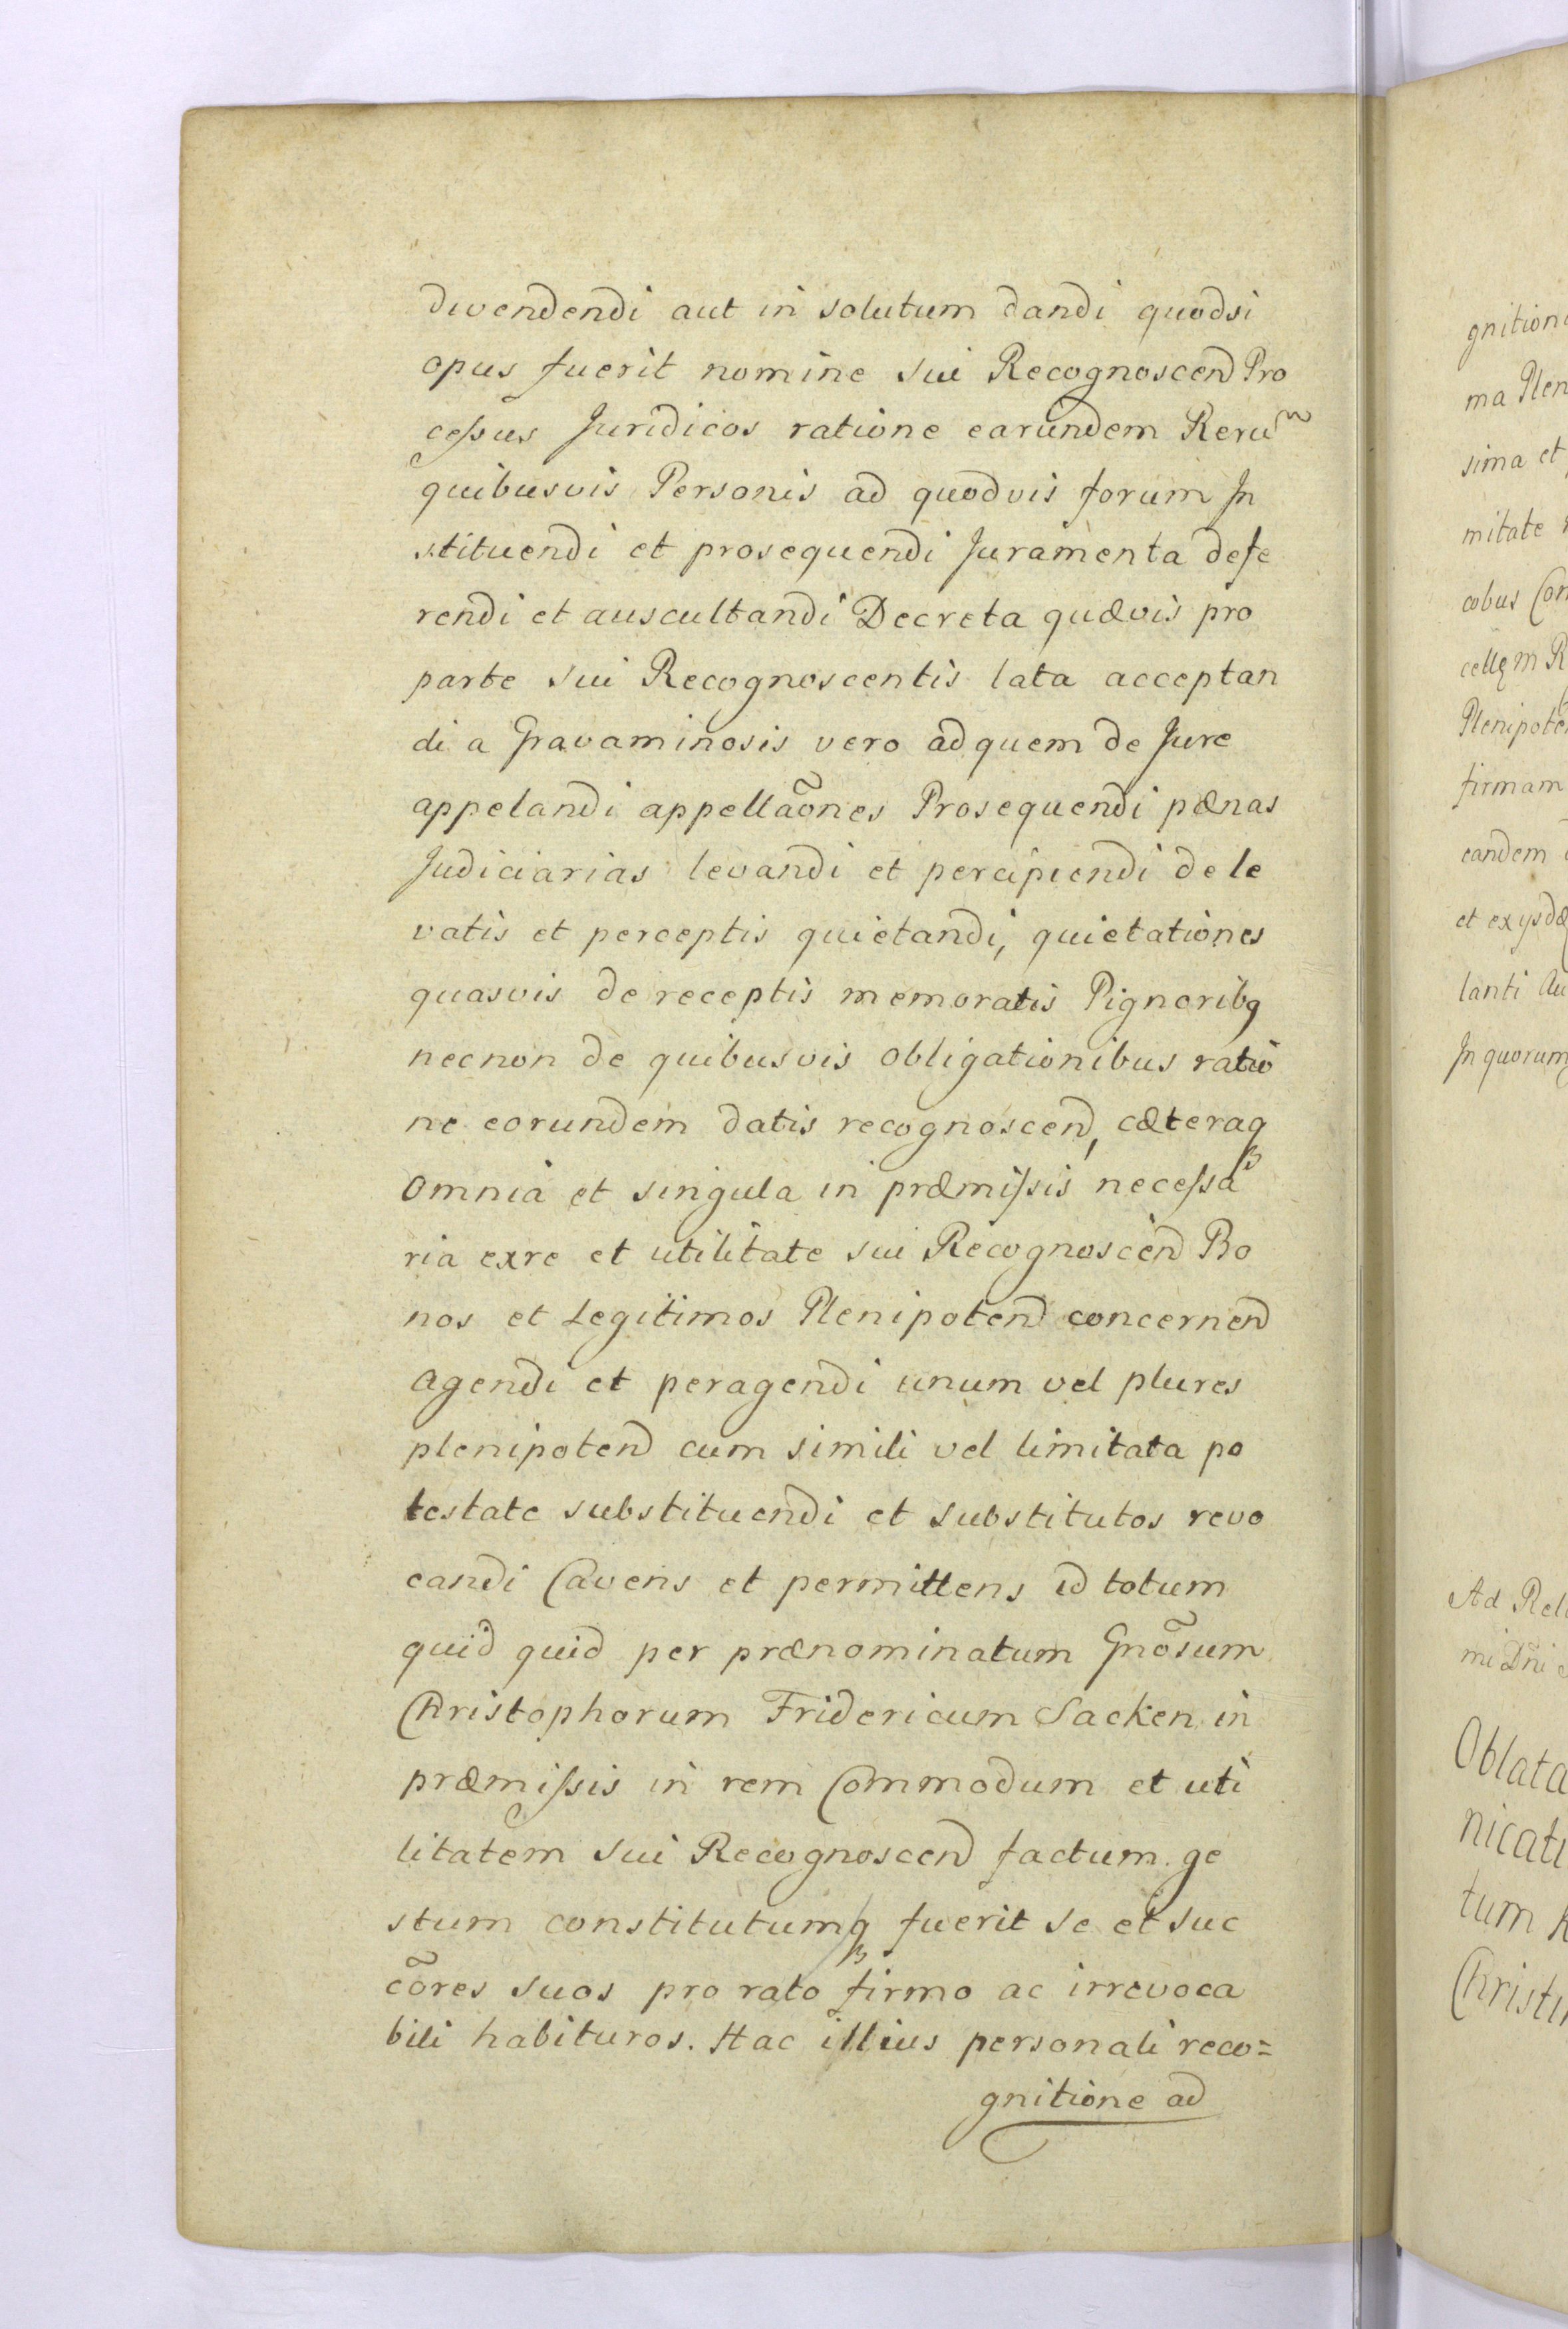 divendendi aut in solutum dandi quodsi
opus fuerit nomine sui Recognoscend Pro
cessus Juridicos ratione earundem Rerum
quibusvis Personis ad quodvis forum In
stituendi et prosequendi Juramenta defe
rendi et auscultandi Decreta quævis pro
parte sui Recognoscentis lata acceptan
di a Gravaminosis vero ad quem de Jure
appelandi appellaõnes Prosequendi pænas
Judiciarias levandi et percipiendi de le
vatis et perceptis quietandi, quietationes
quasvis de receptis memoratis Pignoribq
necnon de quibusvis obligationibus ratio
ne eorundem datis recognoscend, cæteraq
omnia et singula in præmissis necessa
ria exre et utilitate sui Recognoscend Bo
nos et Legitimos Plenipotend concernend
agendi et peragendi unum vel plures
plenipotend cum simili vel limitata po
testate substituendi et substitutos revo
candi Cavens et permittens id totum
quid quid per prænominatum Gnõsum
Christophorum Fridericum Sacken in
præmissis in rem Commodum et uti
litatem sui Recognoscend factum ge
stum constitutumq fuerit se et suc
cõres suos pro rato firmo ac irrevoca
bili habituros. Hac illius personali reco=
gnitione ad
gnition
ma Plen
sima et
mitate
cobus Con
cellem R
Plenipote
firmam
eandem
et exysdæ
lanti Au
In quorum
Ad Rel
mi Dñi
Oblata
nicati
tum
Christi